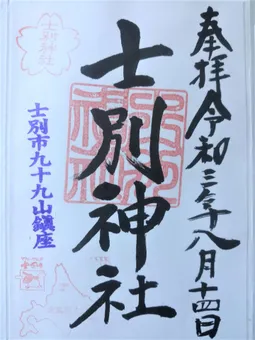 奉拝令和三年八月十四日
士別神社
士別市九十九山鎮座
士別神社